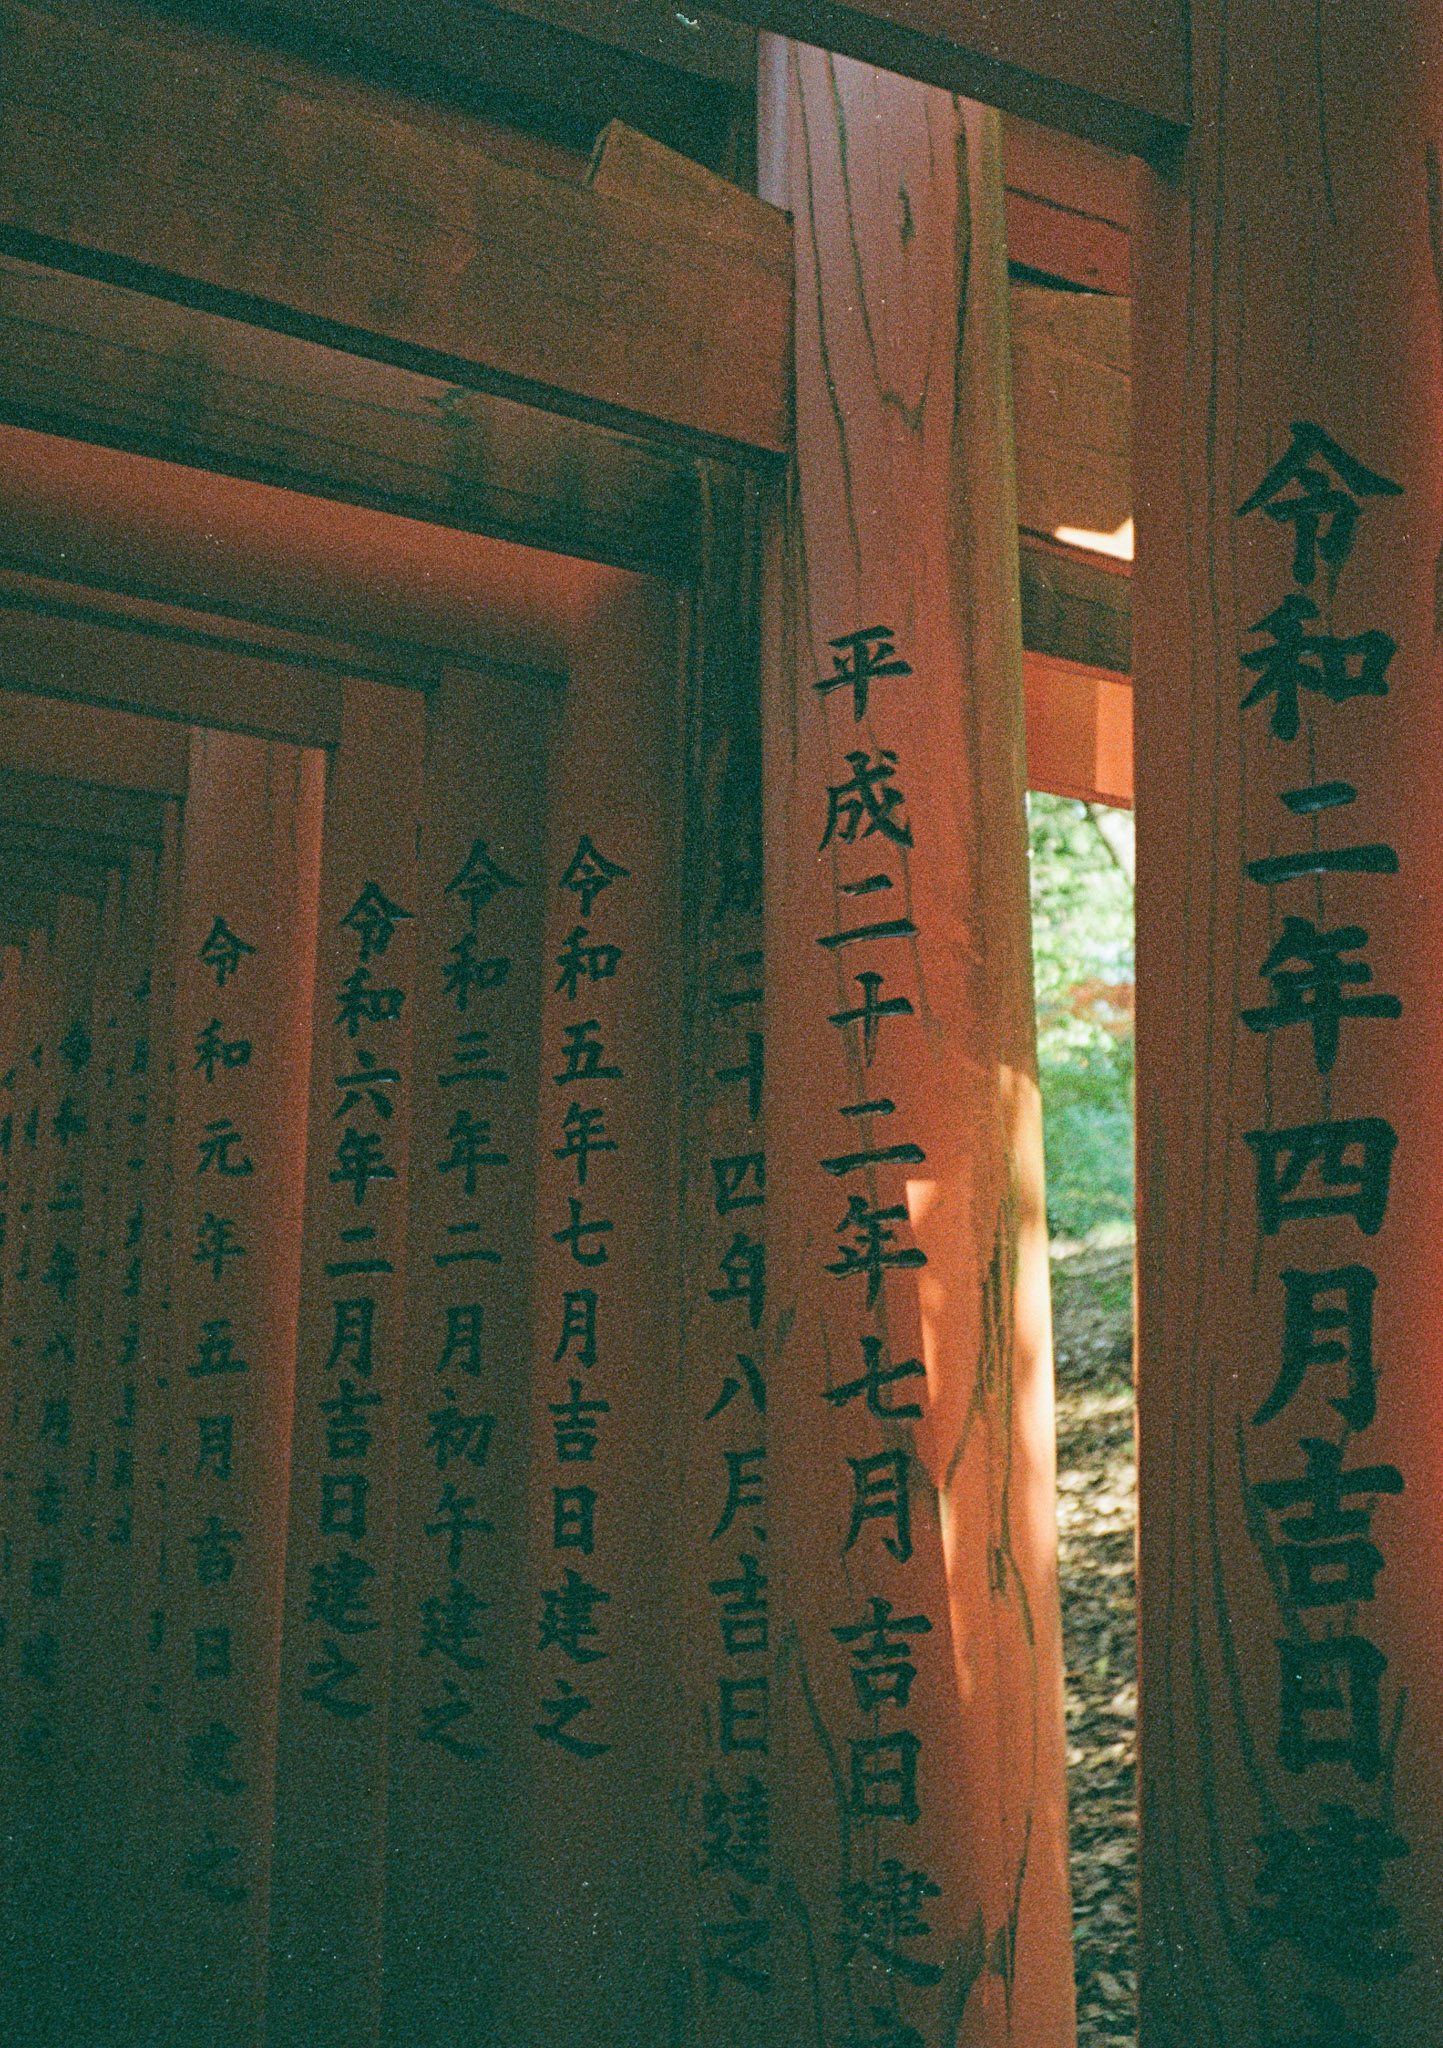 令和二年四月吉日建
平成二十二年七月吉日建
成二十四年八月吉日建之
令和五年七月吉日建之
令和三年二月初午建之
令和六年二月吉日建之
令和元年五月吉日建之
令和二年八月吉日建